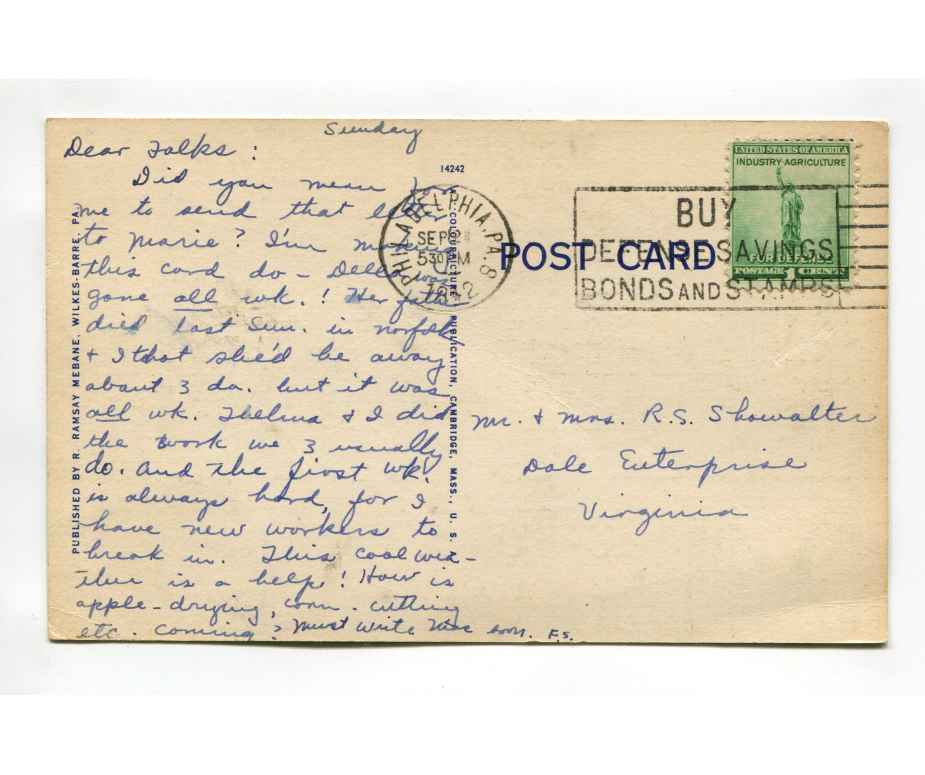 Sunday
Dear Folks :
Did you mean for
me to send that letter
to Marie? I'm making
this card do - Della was
gone all wk.! Her father
died last Sun. in Norfolk
& I thot she'd be away
about 3 da. but it was
all wk. Thelma & I did
the work we 3 usually
do. And the first wk.
is always hard, for I
have new workers to
break in. This cool wea-
ther is a help! How is
apple-drying, corn-cutting
etc. coming? Must write soon. F.S.
PUBLISHED BY R. RAMSAY MEBANE, WILKES-BARRE, PA.
14242
PUBLICATION, CAMBRIDGE, MASS., U. S. A.
PHILADELPHIA, PA. 8
SEP
530 PM
1942
POST CARD
BUY
DEFENSE SAVINGS
BONDS AND STAMPS
UNITED STATES OF AMERICA
INDUSTRY AGRICULTURE
FOR DEFENSE
POSTAGE 1 CENT
Mr. & Mrs. R.S. Showalter
Dale Enterprise
Virginia